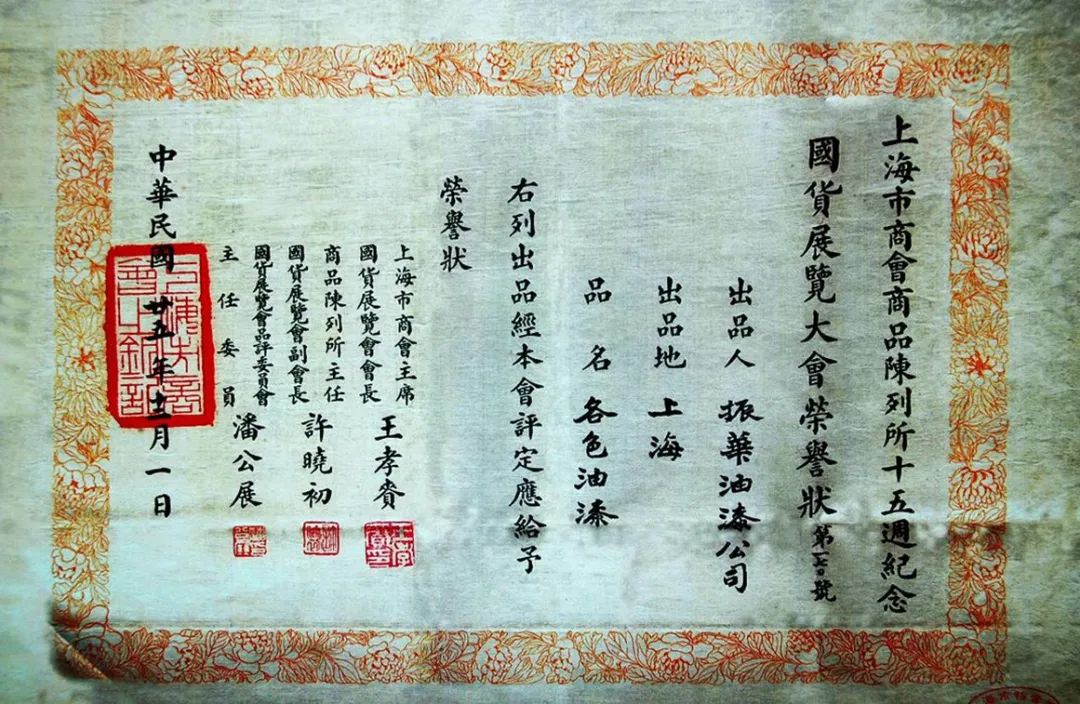 上海市商會商品陳列所十五週紀念
國貨展覽大會榮譽狀
出品人 振華油漆公司
出品地 上海
品名 各色油漆
右列出品經本會評定應給予
榮譽狀
上海市商會主席
國貨展覽會會長
王孝賚
商品陳列所主任
國貨展覽會副會長
許曉初
國貨展覽會品評委員會
主任委員
潘公展
中華民國廿五年十二月一日